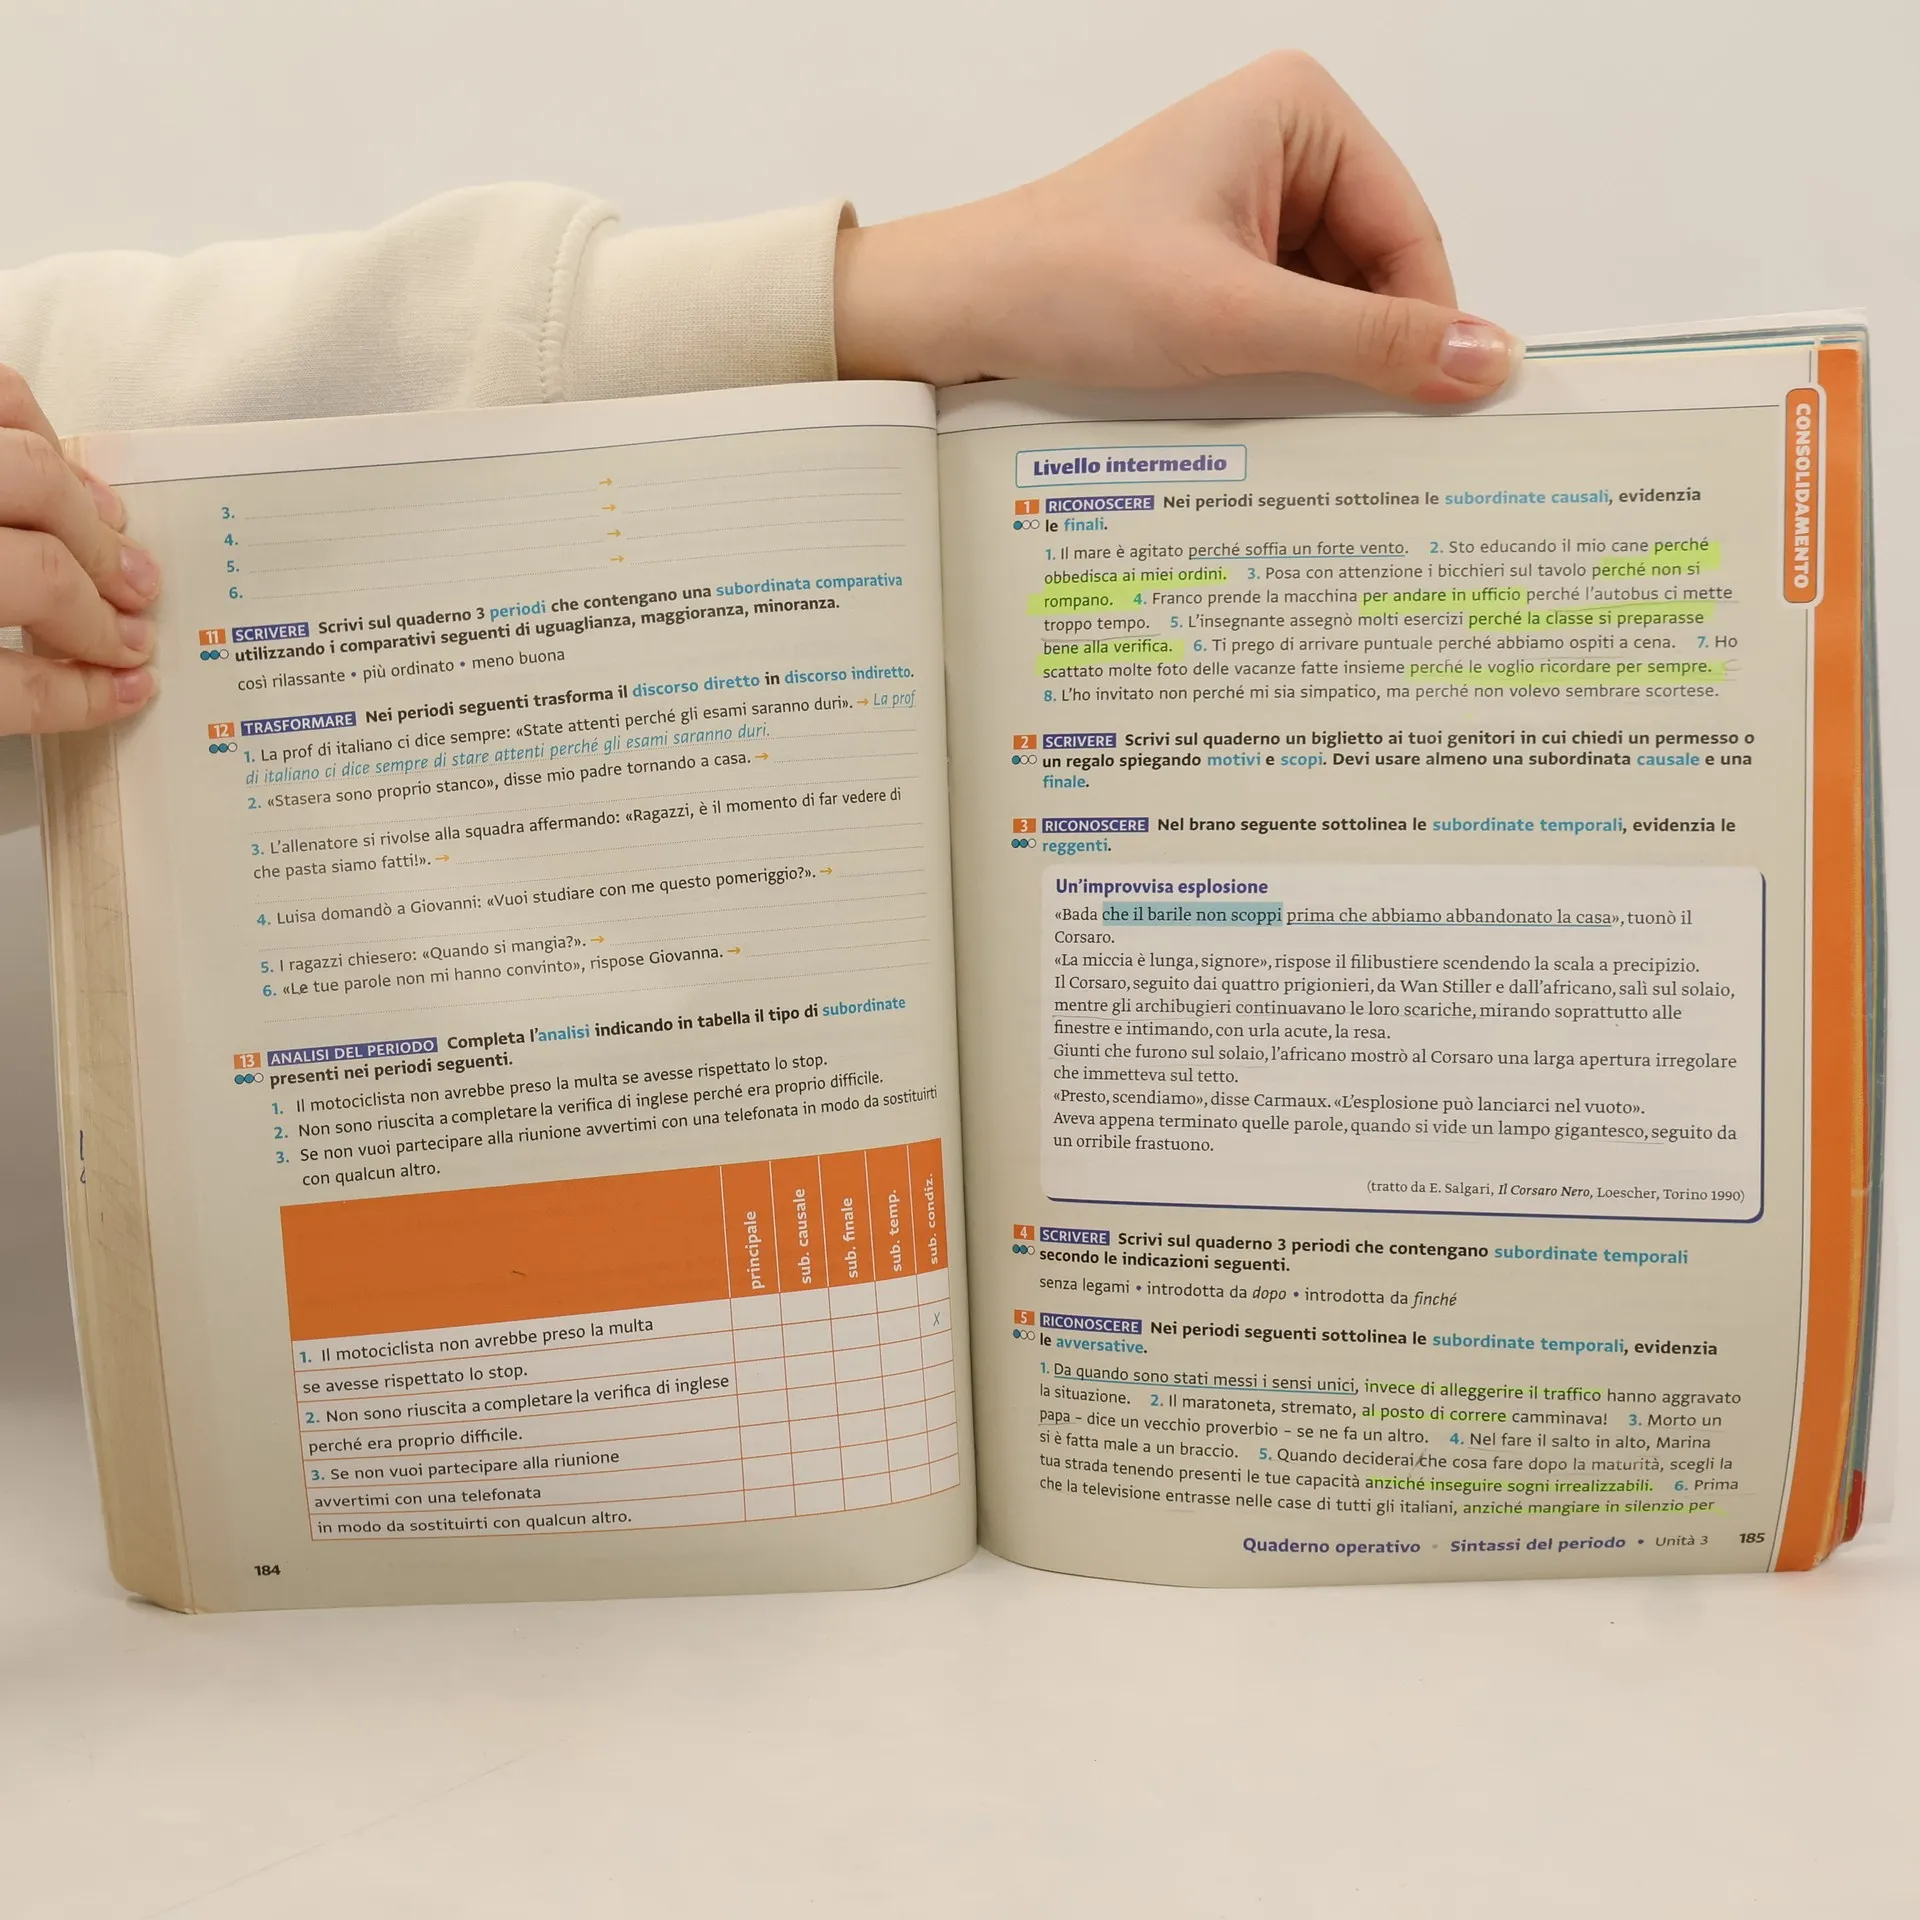 3.
→
4.
→
5.
→
6.
→
11 SCRIVERE Scrivi sul quaderno 3 periodi che contengano una subordinata comparativa
utilizzando i comparativi seguenti di uguaglianza, maggioranza, minoranza.
così rilassante • più ordinato • meno buona
12 TRASFORMARE Nei periodi seguenti trasforma il discorso diretto in discorso indiretto.
1. La prof di italiano ci dice sempre: «State attenti perché gli esami saranno duri». → La prof
di italiano ci dice sempre di stare attenti perché gli esami saranno duri.
2. «Stasera sono proprio stanco», disse mio padre tornando a casa. →
3. L'allenatore si rivolse alla squadra affermando: «Ragazzi, è il momento di far vedere di
che pasta siamo fatti!». →
4. Luisa domandò a Giovanni: «Vuoi studiare con me questo pomeriggio?». →
5. I ragazzi chiesero: «Quando si mangia?». →
6. «Le tue parole non mi hanno convinto», rispose Giovanna. →
13 ANALISI DEL PERIODO Completa l'analisi indicando in tabella il tipo di subordinate
presenti nei periodi seguenti.
1. Il motociclista non avrebbe preso la multa se avesse rispettato lo stop.
2. Non sono riuscita a completare la verifica di inglese perché era proprio difficile.
3. Se non vuoi partecipare alla riunione avvertimi con una telefonata in modo da sostituirti
con qualcun altro.
principale
sub. causale
sub. finale
sub. temp.
sub. condiz.
1. Il motociclista non avrebbe preso la multa
X
se avesse rispettato lo stop.
2. Non sono riuscita a completare la verifica di inglese
perché era proprio difficile.
3. Se non vuoi partecipare alla riunione
avvertimi con una telefonata
in modo da sostituirti con qualcun altro.
184
CONSOLIDAMENTO
Livello intermedio
1 RICONOSCERE Nei periodi seguenti sottolinea le subordinate causali, evidenzia
le finali.
1. Il mare è agitato perché soffia un forte vento. 2. Sto educando il mio cane perché
obbedisca ai miei ordini. 3. Posa con attenzione i bicchieri sul tavolo perché non si
rompano. 4. Franco prende la macchina per andare in ufficio perché l'autobus ci mette
troppo tempo. 5. L'insegnante assegnò molti esercizi perché la classe si preparasse
bene alla verifica. 6. Ti prego di arrivare puntuale perché abbiamo ospiti a cena. 7. Ho
scattato molte foto delle vacanze fatte insieme perché le voglio ricordare per sempre.
8. L'ho invitato non perché mi sia simpatico, ma perché non volevo sembrare scortese.
2 SCRIVERE Scrivi sul quaderno un biglietto ai tuoi genitori in cui chiedi un permesso o
un regalo spiegando motivi e scopi. Devi usare almeno una subordinata causale e una
finale.
3 RICONOSCERE Nel brano seguente sottolinea le subordinate temporali, evidenzia le
reggenti.
Un'improvvisa esplosione
«Bada che il barile non scoppi prima che abbiamo abbandonato la casa», tuonò il
Corsaro.
«La miccia è lunga, signore», rispose il filibustiere scendendo la scala a precipizio.
Il Corsaro, seguito dai quattro prigionieri, da Wan Stiller e dall'africano, salì sul solaio,
mentre gli archibugieri continuavano le loro scariche, mirando soprattutto alle
finestre e intimando, con urla acute, la resa.
Giunti che furono sul solaio, l'africano mostrò al Corsaro una larga apertura irregolare
che immetteva sul tetto.
«Presto, scendiamo», disse Carmaux. «L'esplosione può lanciarci nel vuoto».
Aveva appena terminato quelle parole, quando si vide un lampo gigantesco, seguito da
un orribile frastuono.
(tratto da E. Salgari, Il Corsaro Nero, Loescher, Torino 1990)
4 SCRIVERE Scrivi sul quaderno 3 periodi che contengano subordinate temporali
secondo le indicazioni seguenti.
senza legami • introdotta da dopo • introdotta da finché
5 RICONOSCERE Nei periodi seguenti sottolinea le subordinate temporali, evidenzia
le avversative.
1. Da quando sono stati messi i sensi unici, invece di alleggerire il traffico hanno aggravato
la situazione. 2. Il maratoneta, stremato, al posto di correre camminava! 3. Morto un
papa – dice un vecchio proverbio – se ne fa un altro. 4. Nel fare il salto in alto, Marina
si è fatta male a un braccio. 5. Quando deciderai che cosa fare dopo la maturità, scegli la
tua strada tenendo presenti le tue capacità anziché inseguire sogni irrealizzabili. 6. Prima
che la televisione entrasse nelle case di tutti gli italiani, anziché mangiare in silenzio per
Quaderno operativo • Sintassi del periodo • Unità 3 185